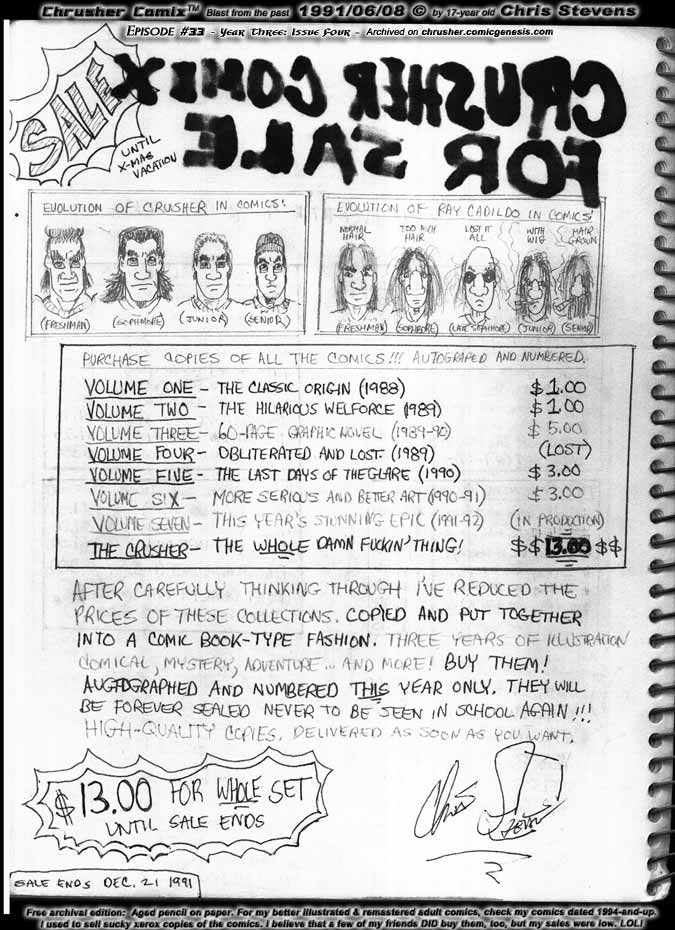 Chrusher Comix™ Blast from the past 1991/06/08 © by 17-year old Chris Stevens
EPISODE #33 - YEAR THREE: ISSUE FOUR - Archived on chrusher.comicgenesis.com
SALE
UNTIL
X-MAS
VACATION
CRUSHER COMIX
FOR SALE
EVOLUTION OF CRUSHER IN COMICS!
(FRESHMAN) (SOPHMORE) (JUNIOR) (SENIOR)
EVOLUTION OF RAY CADILDO IN COMICS!
NORMAL HAIR TOO MUCH HAIR LOST IT ALL WITH WIG HAIR GROWN
(FRESHMAN) (SOPHMORE) (LATE SOPHMORE) (JUNIOR) (SENIOR)
PURCHASE COPIES OF ALL THE COMICS!!! AUTOGRAPED AND NUMBERED.
VOLUME ONE - THE CLASSIC ORIGIN (1988) $1.00
VOLUME TWO - THE HILARIOUS WELFORCE (1989) $1.00
VOLUME THREE - 60-PAGE GRAPHIC NOVEL (1989-90) $5.00
VOLUME FOUR - OBLITERATED AND LOST. (1989) (LOST)
VOLUME FIVE - THE LAST DAYS OF THEGLARE (1990) $3.00
VOLUME SIX - MORE SERIOUS AND BETER ART (1990-91) $3.00
VOLUME SEVEN - THIS YEAR'S STUNNING EPIC (1991-92) (IN PRODUCTION)
THE CRUSHER - THE WHOLE DAMN FUCKIN' THING! $$13.00$$
AFTER CAREFULLY THINKING THROUGH I'VE REDUCED THE
PRICES OF THESE COLLECTIONS. COPIED AND PUT TOGETHER
INTO A COMIC BOOK-TYPE FASHION. THREE YEARS OF ILLUSTRATION
COMICAL, MYSTERY, ADVENTURE... AND MORE! BUY THEM!
AUGTOGRAPHED AND NUMBERED THIS YEAR ONLY. THEY WILL
BE FOREVER SEALED NEVER TO BE SEEN IN SCHOOL AGAIN!!!
HIGH-QUALITY COPIES. DELIVERED AS SOON AS YOU WANT.
$13.00 FOR WHOLE SET
UNTIL SALE ENDS
Chris Stevens
SALE ENDS DEC. 21 1991
Free archival edition: Aged pencil on paper. For my better illustrated & remastered adult comics, check my comics dated 1994-and-up.
I used to sell sucky xerox copies of the comics. I believe that a few of my friends DID buy them, too, but my sales were low. LOL!